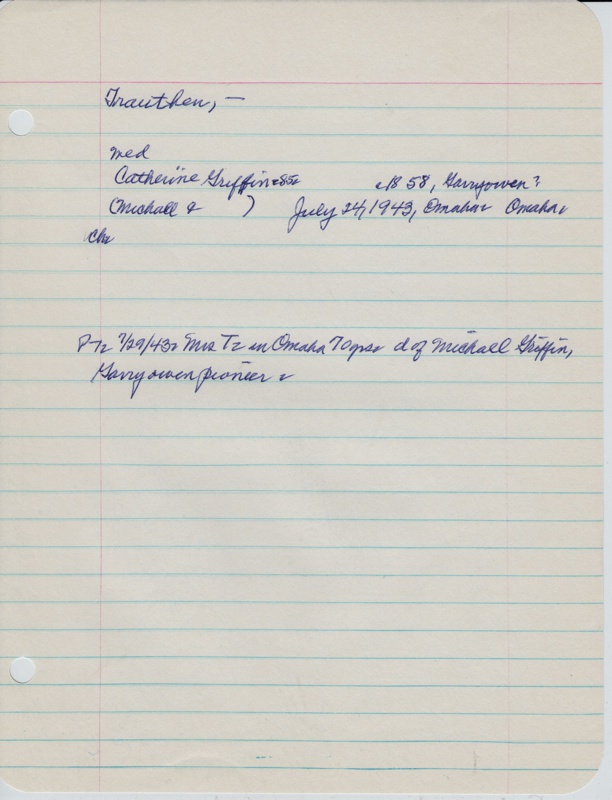 Trauthen, —
med
Catherine Griffin 85. c1858, Garryowen?
(Michall & ) July 24, 1943, Omaha. Omaha.
Ch.
7/29/43. Mrs T. in Omaha 70 yrs. d of Michall Griffin,
Garryowen pioneer.